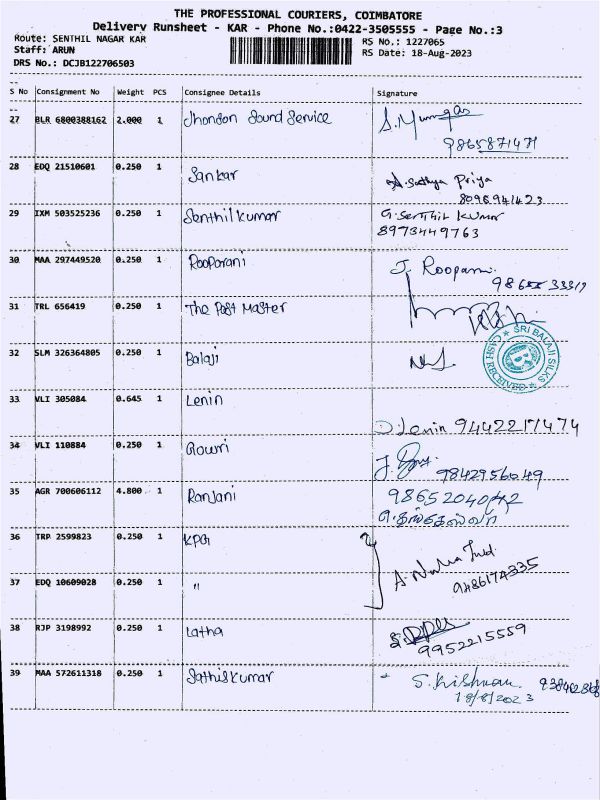 THE PROFESSIONAL COURIERS, COIMBATORE
Delivery Runsheet - KAR - Phone No.:0422-3505555 - Page No.:3
Route: SENTHIL NAGAR KAR
RS No.: 1227065
Staff: ARUN
RS Date: 18-Aug-2023
DRS No.: DCJB122706503
S No Consignment No Weight PCS Consignee Details Signature
27 BLR 6800388162 2.000 1 Jhonson Sound Service
9865871471
28 EDQ 21510601 0.250 1 Sankar A. Sathya Priya
8098941423
29 IXM 503525236 0.250 1 Senthil kumar G. Senthil Kumar
8973449763
30 MAA 297449520 0.250 1 Rooparani J. Roopa
31 TRL 656419 0.250 1 The Post Master
SRI BALAJI SILKS
CASH RECEIVED
32 SLM 326364805 0.250 1 Balaji
33 VLI 305084 0.645 1 Lenin
D. Lenin
34 VLI 110884 0.250 1 Gowri
9842956049
35 AGR 700606112 4.800 1 Ranjani
36 TRP 2599823 0.250 1 KPG
37 EDQ 10609028 0.250 1 "
9486174335
38 RJP 3198992 0.250 1 Latha
9952215559
39 MAA 572611318 0.250 1 Sathiskumar S. Kishnan
18/8/2023